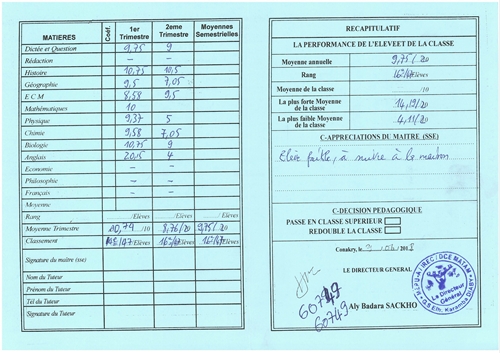 MATIERES Coef. 1er Trimestre 2eme Trimestre Moyennes Semestrielles
Dictée et Question 9,75 9
Rédaction — —
Histoire 10,75 10,5
Géographie 9,5 7,05
E C M 8,58 9,5
Mathématiques 10
Physique 9,37 5
Chimie 9,58 7,05
Biologie 10,75 9
Anglais 20,15 4
Economie — —
Philosophie — —
Français — —
Moyenne
Rang /Elèves /Elèves /Elèves
Moyenne Trimestre 10,74 /10 8,76/20 9,75/20
Classement /47 Elèves 16e/47 Elèves 16e/47 Elèves
Signature du maître (sse)
Nom du Tuteur
Prénom du Tuteur
Tél du Tuteur
Signature du Tuteur
RECAPITULATIF
LA PERFORMANCE DE L'ELEVEET DE LA CLASSE
Moyenne annuelle 9,75/20
Rang 16e/47 Elèves
Moyenne de la classe /10
La plus forte Moyenne de la classe 14,19/20
La plus faible Moyenne de la classe 4,11/20
C-APPRECIATIONS DU MAITRE (SSE)
Elève faible, à suivre à la maison
C-DECISION PÉDAGOGIQUE
PASSE EN CLASSE SUPERIEUR
REDOUBLE LA CLASSE
Conakry, le 3 /06/ 2018
LE DIRECTEUR GENERAL
60749
60749
Aly Badara SACKHO
Le Directeur Général